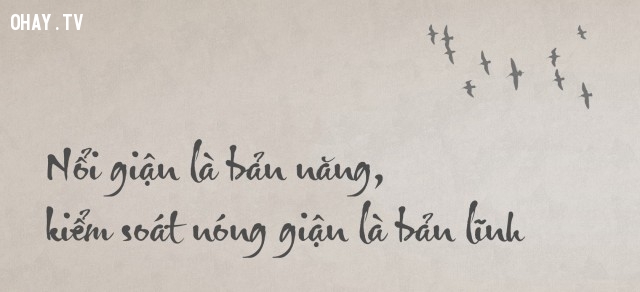 OHAY.TV
Nổi giận là bản năng,
kiểm soát nóng giận là bản lĩnh